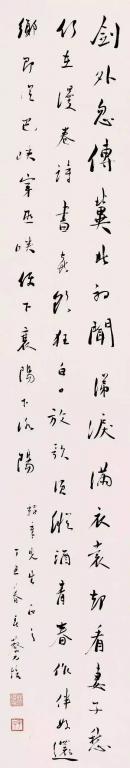 劍外忽傳冀北初聞涕淚滿衣裳却看妻子愁
何在漫卷詩書喜欲狂白日放歌須縱酒青春作伴好還
鄉即從巴峽穿巫峽便下襄陽下洛陽
章先生正之
丁丑春日 蔡元培